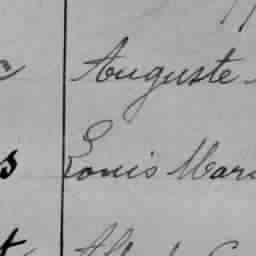 Auguste
s Louis Mari